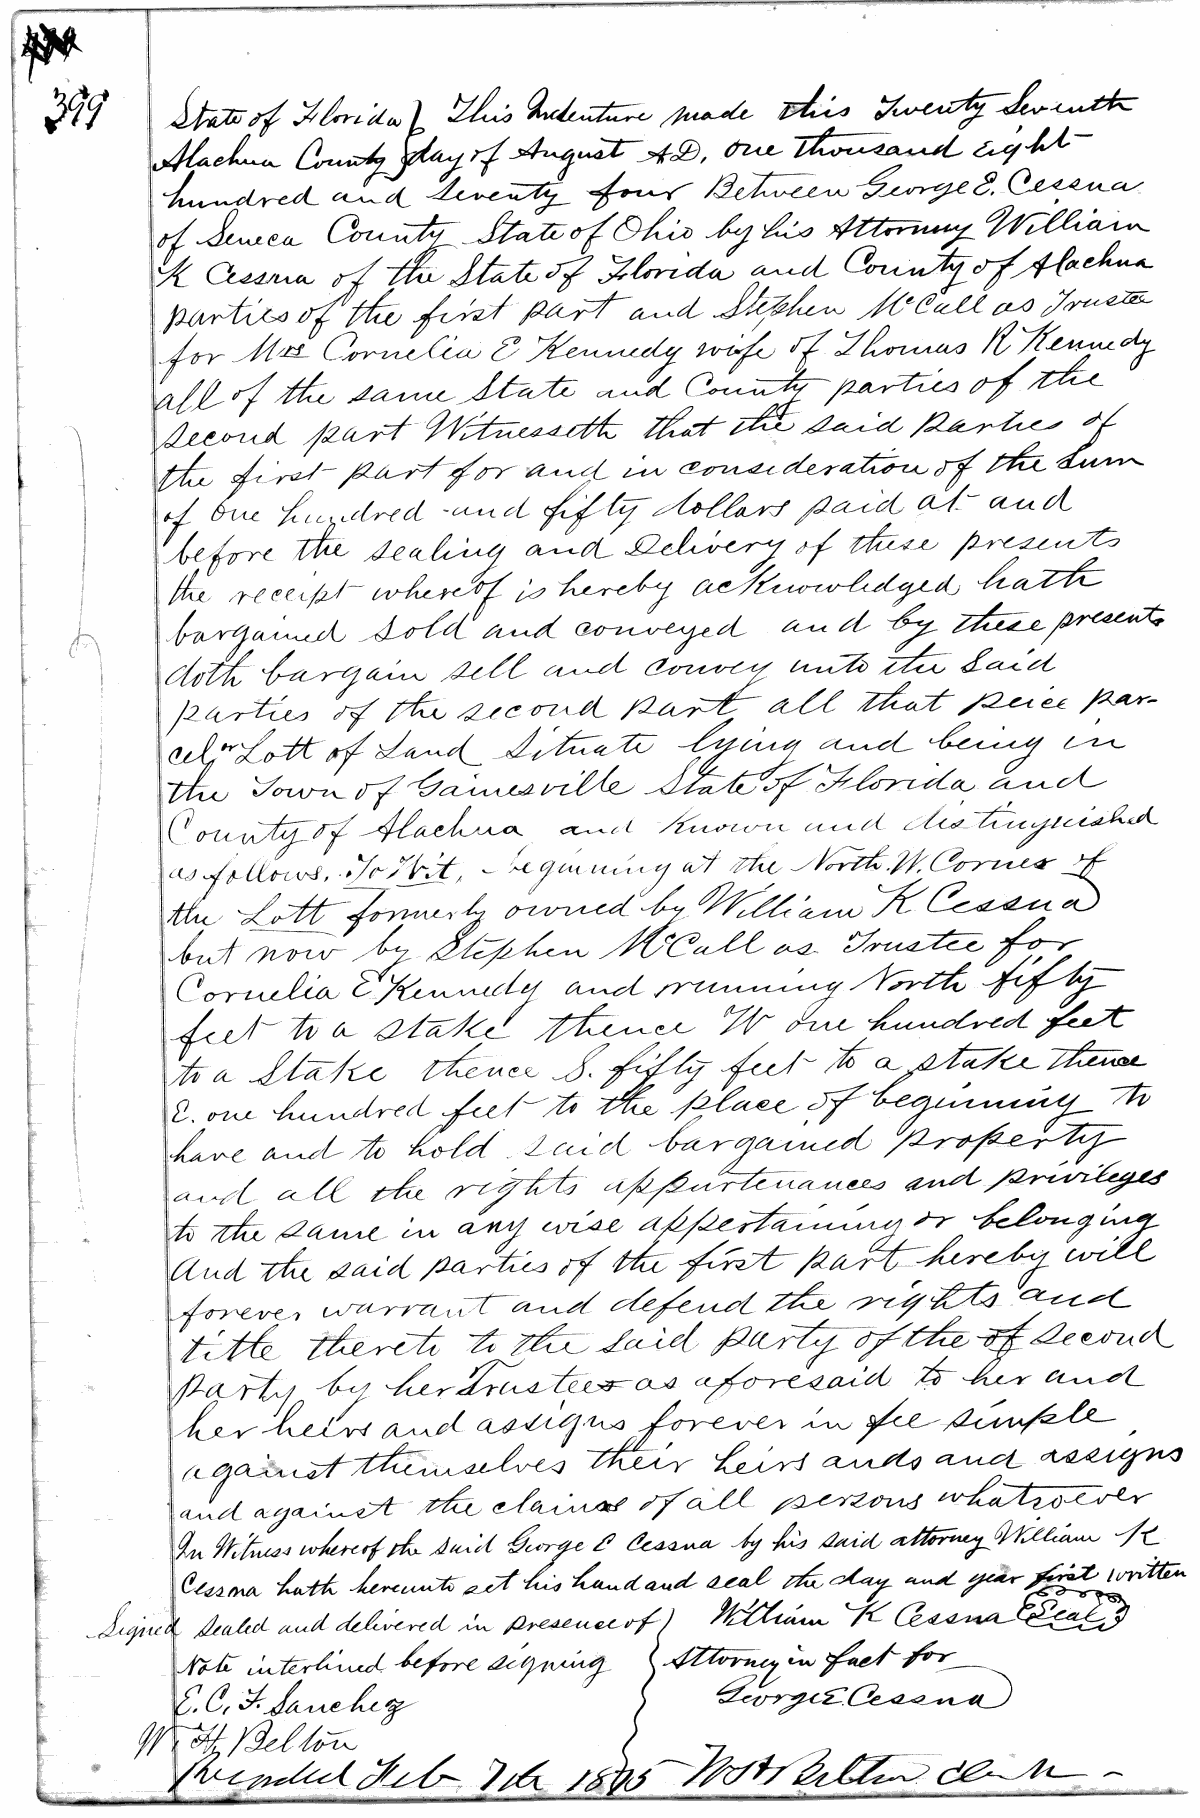 399
State of Florida } This Indenture made this Twenty Seventh
Alachua County } day of August A.D. one thousand Eight
hundred and Seventy four Between George E. Cessna
of Seneca County State of Ohio by his Attorney William
K Cessna of the State of Florida and County of Alachua
parties of the first part and Stephen McCall as Trustee
for Mrs Cornelia E Kennedy wife of Thomas R Kennedy
all of the same State and County parties of the
second part Witnesseth that the said Parties of
the first part for and in consideration of the Sum
of one hundred and fifty dollars paid at and
before the sealing and Delivery of these presents
the receipt whereof is hereby acknowledged hath
bargained sold and conveyed and by these presents
doth bargain sell and convey unto the Said
parties of the second part all that peice par-
cel or Lott of Land Situate lying and being in
the Town of Gainesville State of Florida and
County of Alachua and known and distinguished
as follows. To Wit, beginning at the North. W. Corner of
the Lott formerly owned by William K Cessna
but now by Stephen McCall as Trustee for
Cornelia E Kennedy and running North fifty
feet to a stake thence W one hundred feet
to a Stake thence S. fifty feet to a stake thence
E. one hundred feet to the place of beginning to
have and to hold said bargained property
and all the rights appurtenances and privileges
to the same in any wise appertaining or belonging
And the said parties of the first part hereby will
forever warrant and defend the rights and
title thereto to the said party of the of second
party by her Trustee as aforesaid to her and
her heirs and assigns forever in fee simple
against themselves their heirs ands and assigns
and against the claims of all persons whatsoever
In Witness whereof the said George E Cessna by his said attorney William K
Cessna hath hereunto set his hand and seal the day and year first written
Signed sealed and delivered in presence of } William K Cessna (Seal)
Note interlined before signing } Attorney in fact for
E. C. F. Sanchez George E. Cessna
W. H. Belton
Recorded Feb 7th 1875 W H Belton Clerk